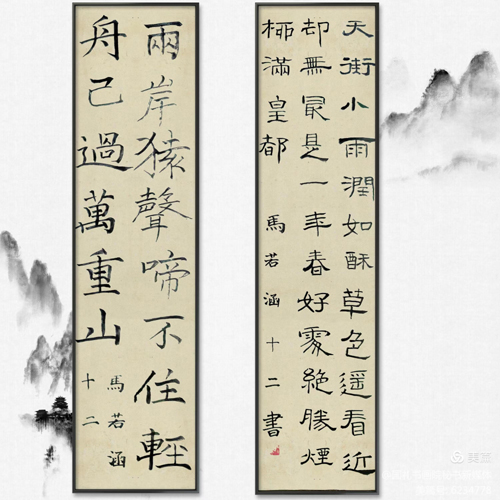 天街小雨潤如酥草色遥看近
却無最是一年春好處絶勝煙
柳滿皇都 馬若涵 十二書
兩岸猿聲啼不住輕
舟己過萬重山
馬若涵
十二
美篇